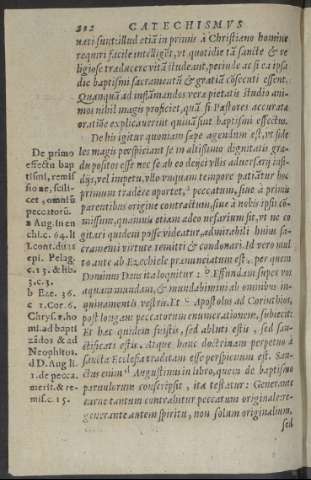 202 CATECHISMVS
nati sunt: illud etiã in primis à Christiano homine
requiri facile intelliget, vt quotidie tã sanctè & re
ligiose traducere vitã studeant, perinde ac si ea ipsa
die baptismi sacramentũ & gratiã cõsecuti essent.
Quanquã ad inflãmandos vera pietatis studio ani-
mos nihil magis proficiet, quã si Pastores accurata
oratiõe explicauerint quinã sunt baptismi effectus.
De his igitur quoniam sæpe agendum est, vt fide
les magis perspiciant se in altissimo dignitatis gra-
du positos esse nec se ab eo deijci vllis aduersarij insi-
dijs, vel impetu, vllo vnquam tempore patiãtur hoc
primum tradere oportet, a peccatum, siue à primis
parentibus origine contractum, siue à nobis ipsi cõ-
missum, quamuis etiam adeo nefarium sit, vt ne co
gitari quidem posse videatur, admirabili huius sa-
cramenti virtute remitti & condonari. Id vero mul
to ante ab Ezechiele prænunciatum est, per quem
Dominus Deus ita loquitur: b Effundam super vos
aquam mundam, & mundabimini ab omnibus in-
quinamentis vestris. Et c Apostolus ad Corinthios,
post longam peccatorum enumerationem, subiecit:
Et hæc quidem fuistis, sed abluti estis, sed san-
ctificati estis. Atque hanc doctrinam perpetuò à
sancta Ecclesia traditam esse perspicuum est. San-
ctus enim d Augustinus in libro, quem de baptismo
paruulorum conscripsit, ita testatur: Generante
carne tantum contrahitur peccatum originale: re-
generante autem spiritu, non solum originalium,
sed
De primo
effectu bap
tismi, remis
sione, scili-
cet, omniũ
peccatorũ.
a Aug. in en
chi. c. 64. li
1. cont. duas
epi. Pelag.
c. 13. & lib.
3. c. 3.
b Eze. 36.
c 1. Cor. 6.
Chrys. t. ho
mi. ad bapti
zãdos & ad
Neophitos.
d D. Aug. li.
1. de pecca.
merit. & re-
mis. c. 15.